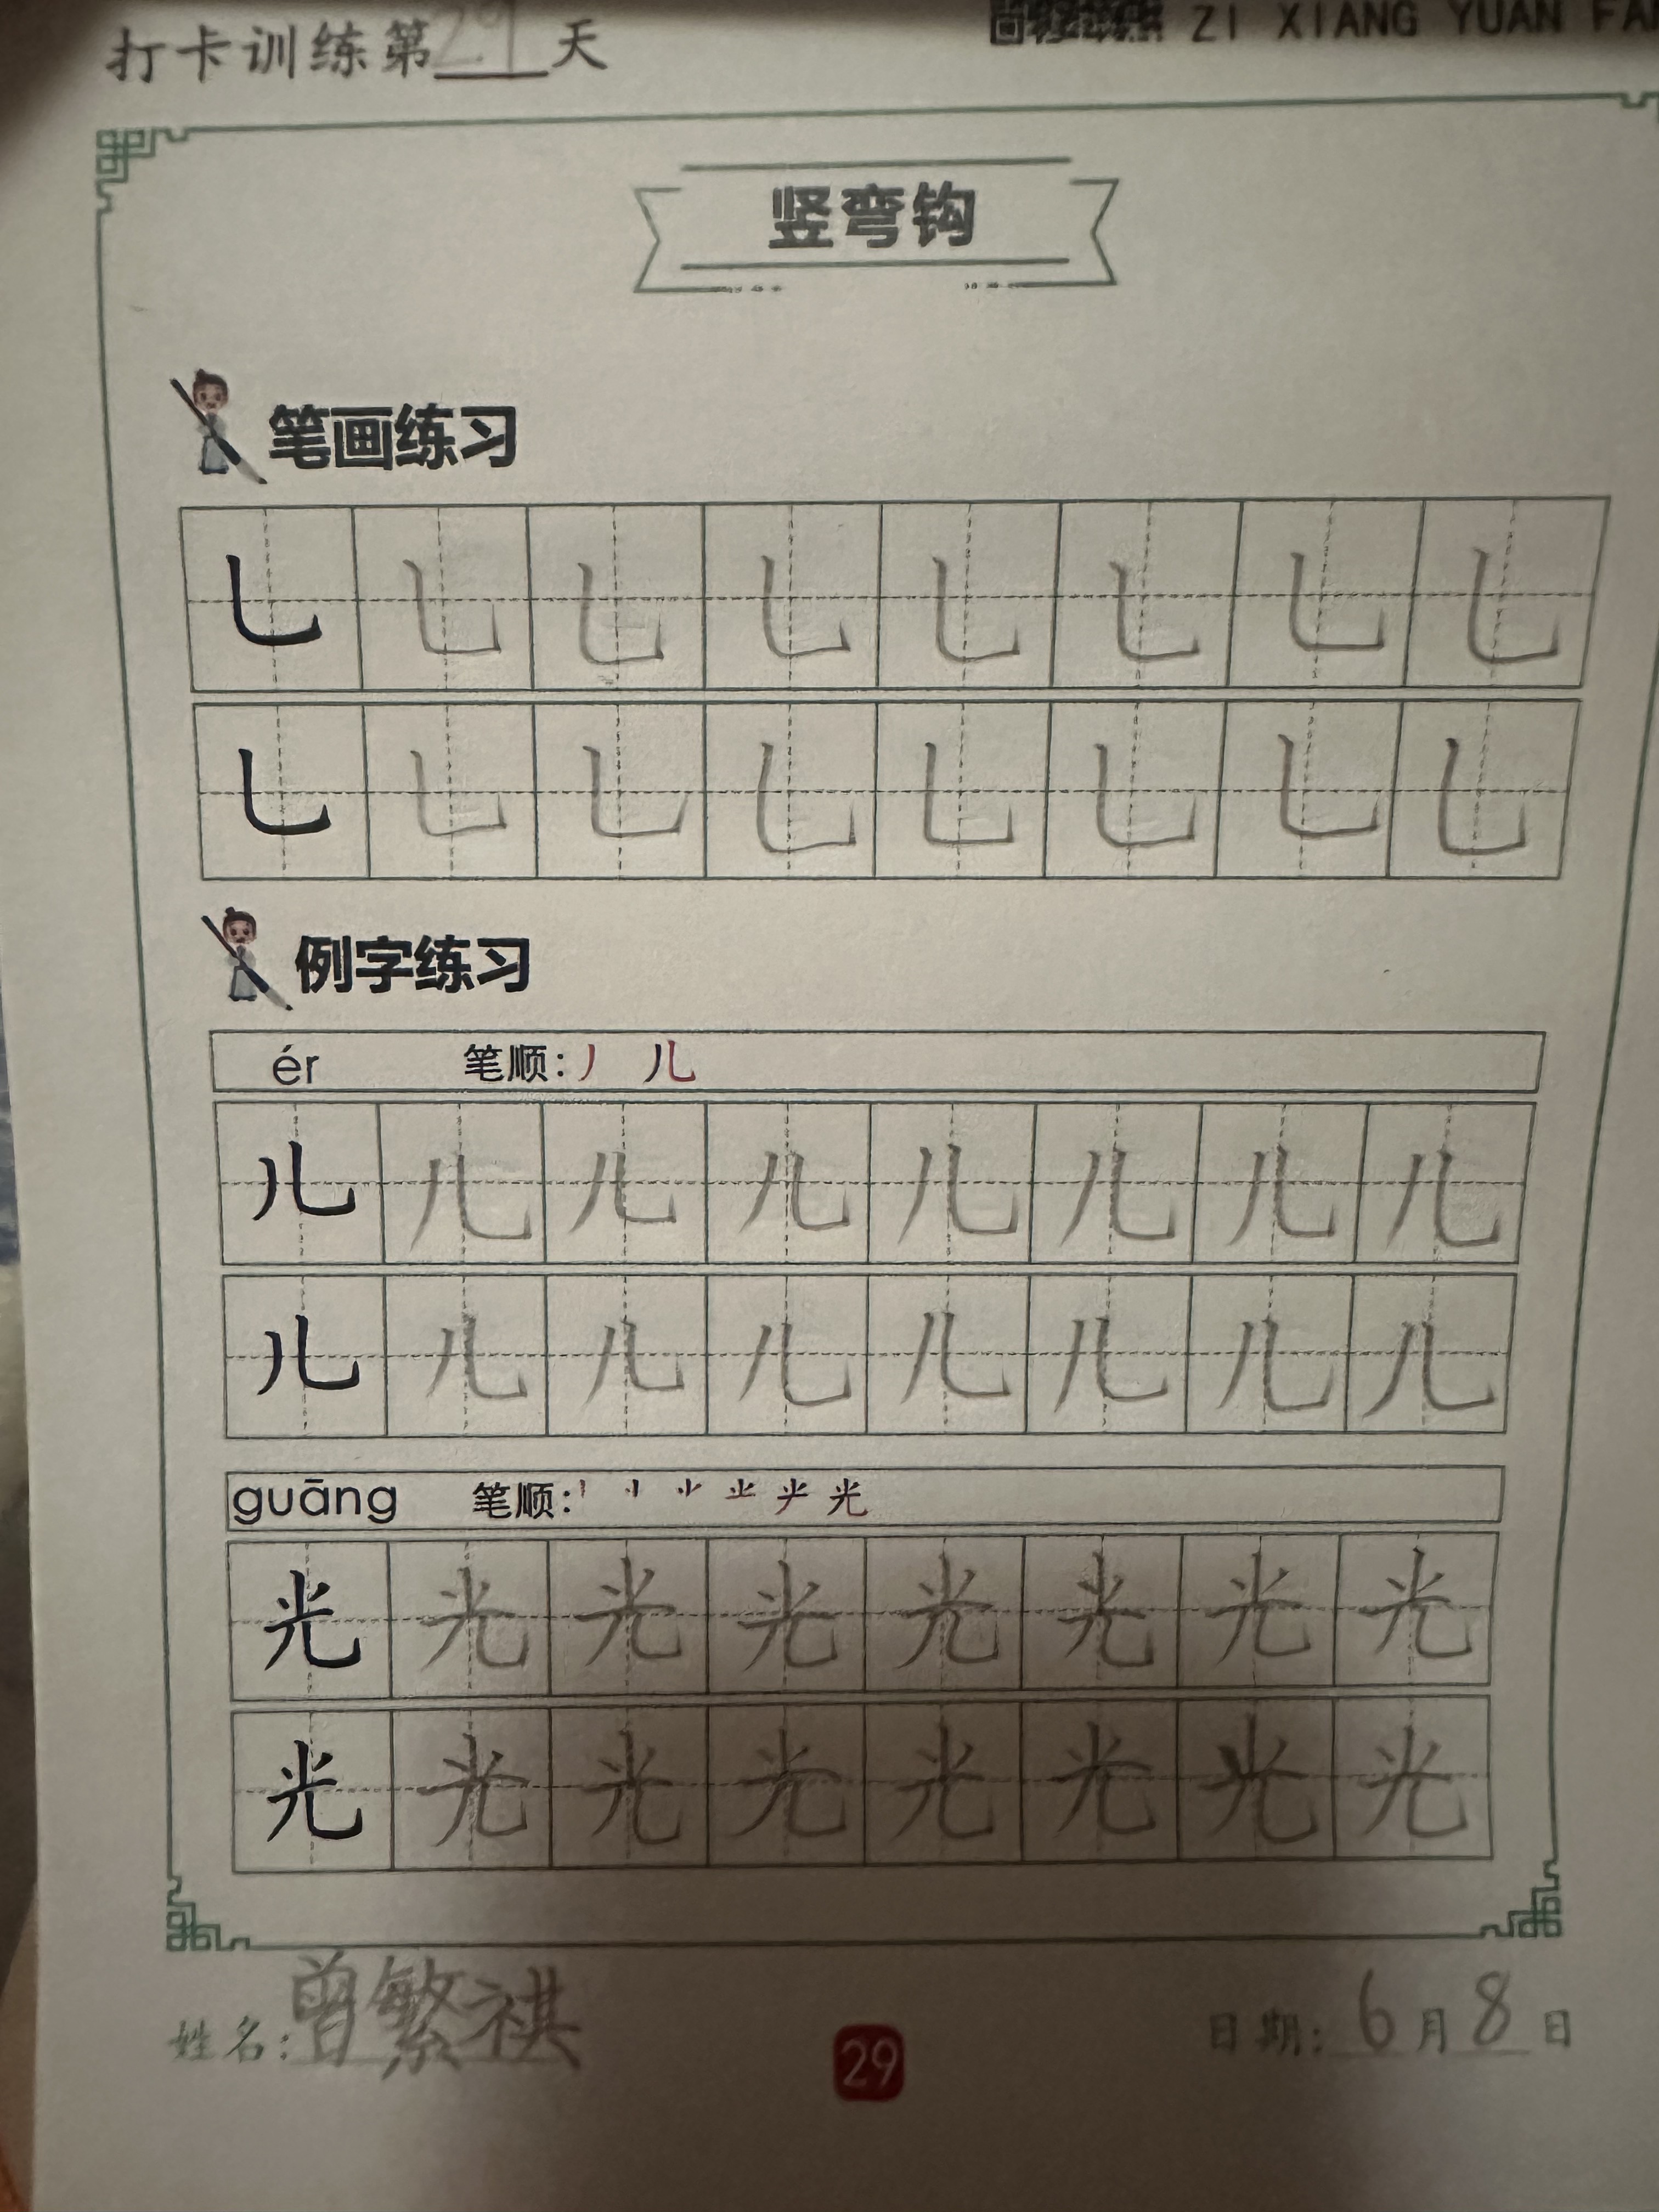 打卡训练第29天
ZI XIANG YUAN FA
竖弯钩
笔画练习
乚 乚 乚 乚 乚 乚 乚 乚
乚 乚 乚 乚 乚 乚 乚 乚
例字练习
ér 笔顺:丿 儿
儿 儿 儿 儿 儿 儿 儿 儿
儿 儿 儿 儿 儿 儿 儿 儿
guāng 笔顺: 光
光 光 光 光 光 光 光 光
光 光 光 光 光 光 光 光
姓名:曾繁祺
29
日期:6月8日